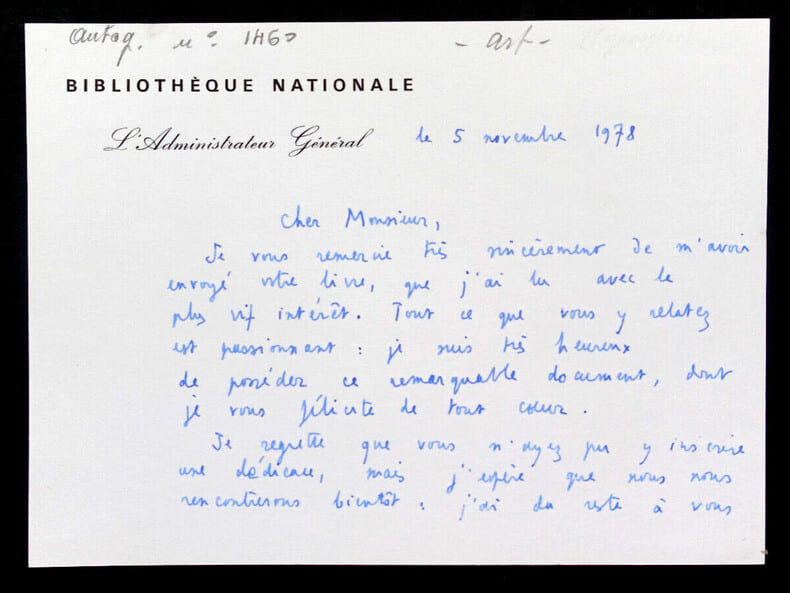 autog. n° 1460 - asf -
BIBLIOTHÈQUE NATIONALE
L'Administrateur Général le 5 novembre 1978
Cher Monsieur,
Je vous remercie très sincèrement de m'avoir
envoyé votre livre, que j'ai lu avec le
plus vif intérêt. Tout ce que vous y relatez
est passionnant : je suis très heureux
de posséder ce remarquable document, dont
je vous félicite de tout cœur.
Je regrette que vous n'ayez pu y inscrire
une dédicace, mais j'espère que nous nous
rencontrerons bientôt : j'ai du reste à vous